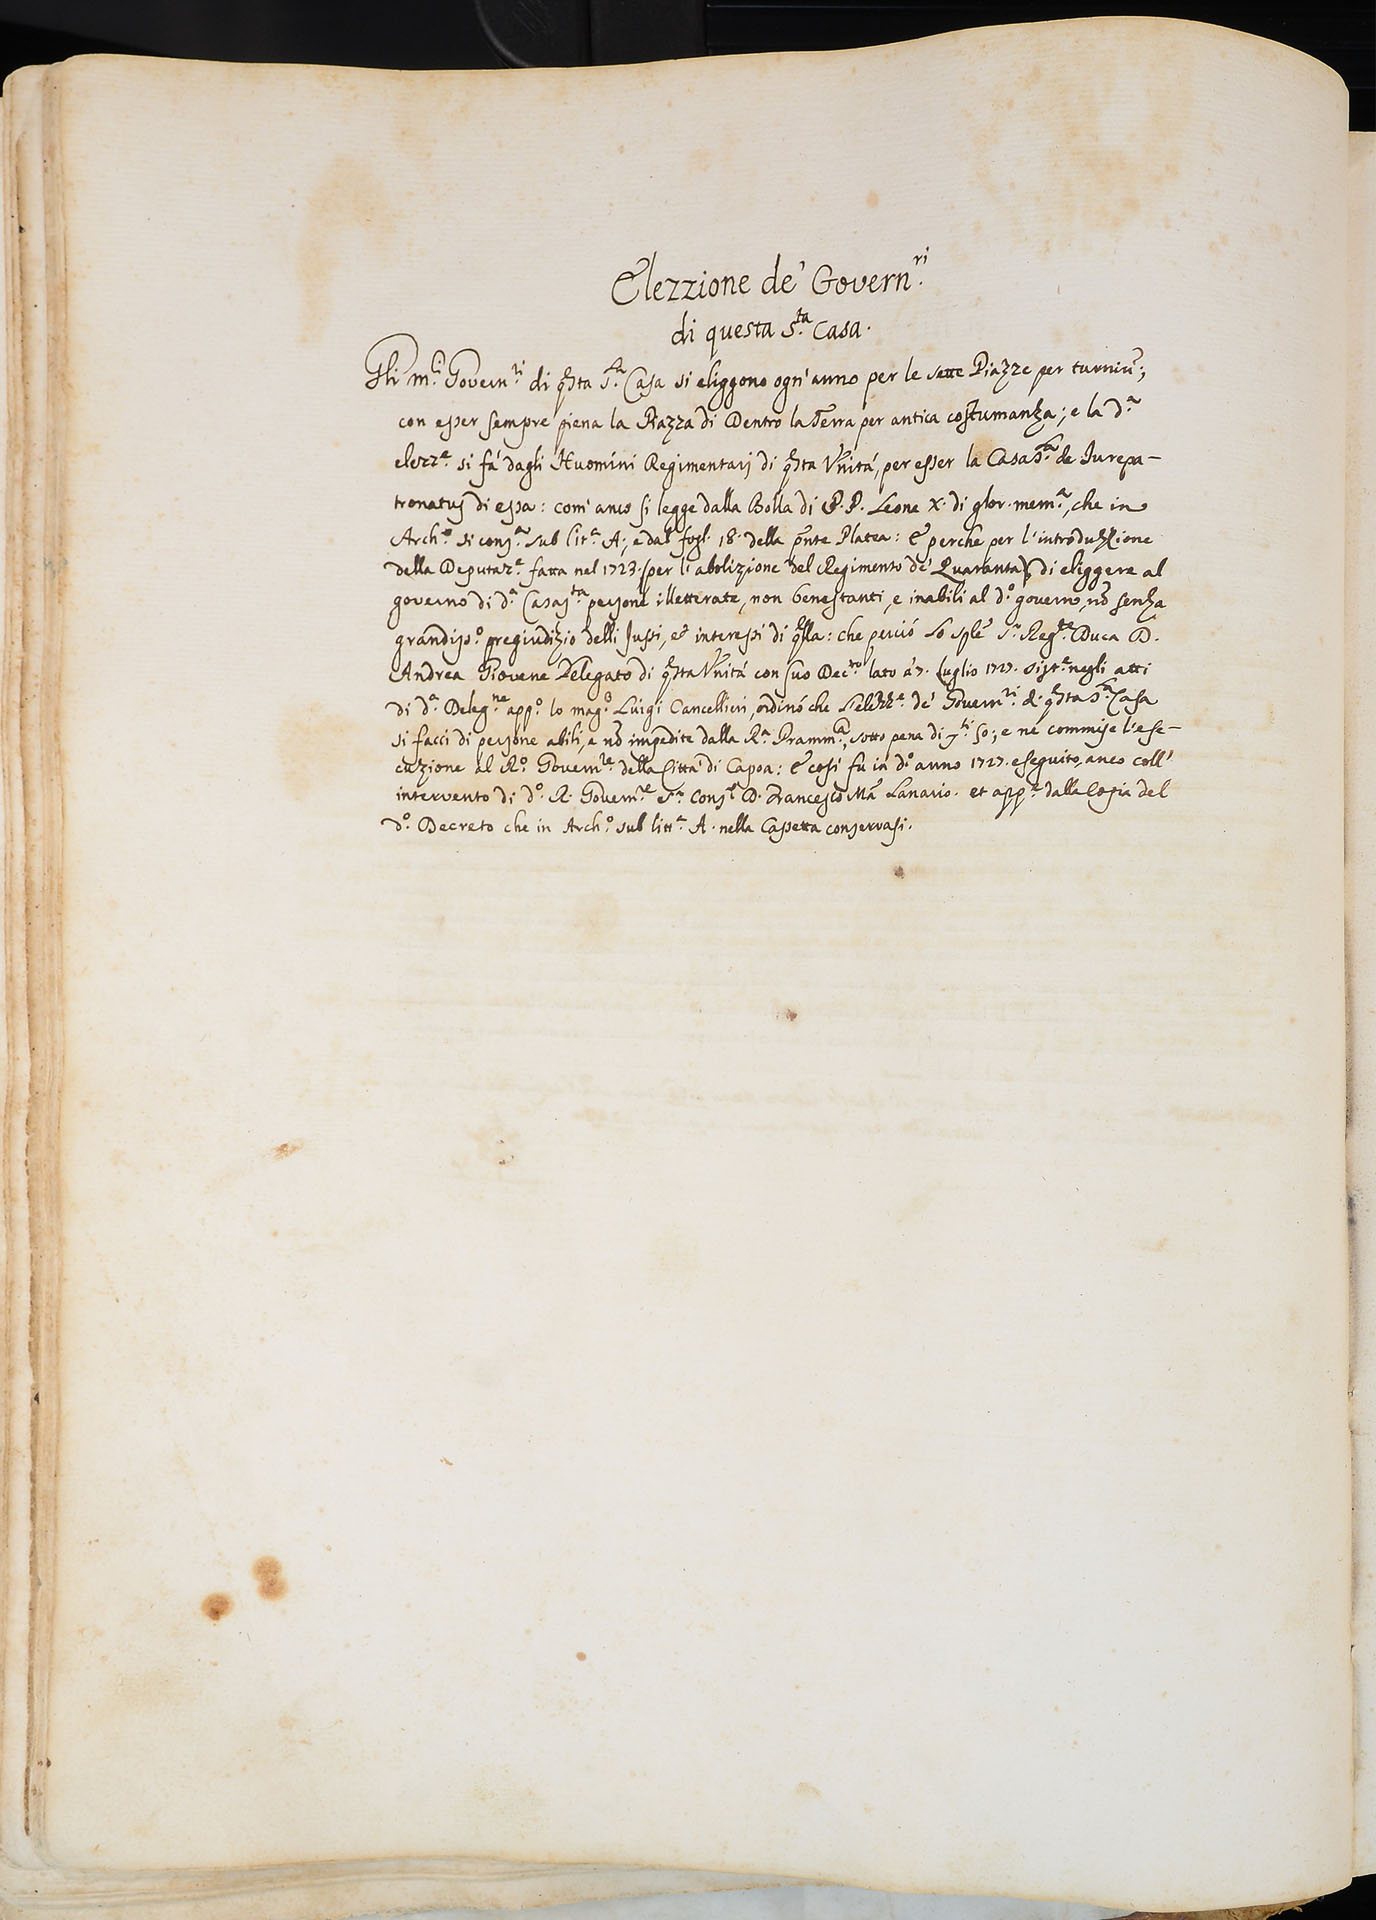 Elezzione de' Govern.ri
di questa S.ta Casa.
Gli m.ci Govern.ri di q̃sta S.ta Casa si eliggono ogn' anno per le sette Piazze per turnũ;
con esser sempre piena la Piazza di Dentro la Terra per antica costumanza; e la d.a
elezz.e si fà dagli Huomini Regimentarij di q̃sta Vñità, per esser la Casa S.ta de Jurepa-
tronatus di essa: com' anco si legge dalla Bolla di P.P. Leone X. di glor. mem.a, che in
Arch.o si cons.a sub lit.a A; e dal fogl. 18. della pñte Platea: E perche per l'introduzzione
della Deputaz.e fatta nel 1723. (per l'abolizione del Regimento de' Quaranta) di eliggere al
governo di d.a Casa S.ta persone illetterate, non benestanti, e inabili al d.o governo, nõ senza
grandiss.o pregiudizio delli Jussi, et interessi di q̃lla: che perciò Lo Splẽ S.r Reg.te Duca D.
Andrea Giovene Delegato di q̃sta Vñità con suo Dec.to lato à 7. Luglio 1727. sist.e negli atti
di d.a Deleg.ne app.o lo mag.o Luigi Cancellieri, ordinò che l'elezz.e de' Govern.ri di q̃sta S.ta Casa
si facci di persone abili, e nõ impedite dalla R.a Pramm.a, sotto pena di 50; e ne commise l'ese-
cuzione al R.o Govern.re della Città di Capoa: E così fu in d.o anno 1727. eseguito, anco coll'
intervento di d.o R. Govern.re e S.r Cons.e D. Francesco Mã Lanario. et app.e dalla Copia del
d.o Decreto che in Arch.o sub litt.a A. nella Cassetta conservasi.